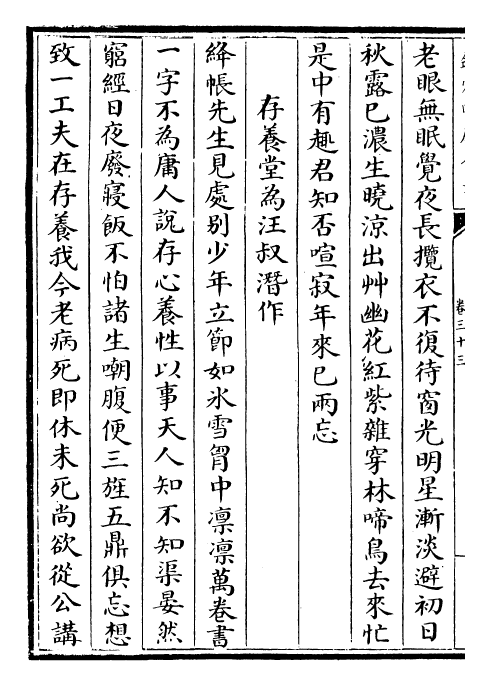 卷三十三
老眼無眠覺夜長攬衣不復待窗光明星漸淡避初日
秋露已濃生曉涼出艸幽花紅紫雜穿林啼鳥去來忙
是中有趣君知否喧寂年來已兩忘
存養堂為汪叔潛作
絳帳先生見處别少年立節如氷雪胷中凛凛萬卷書
一字不為庸人說存心養性以事天人知不知渠晏然
窮經日夜廢寝飯不怕諸生嘲腹便三旌五鼎俱忘想
致一工夫在存養我今老病死即休未死尚欲從公講